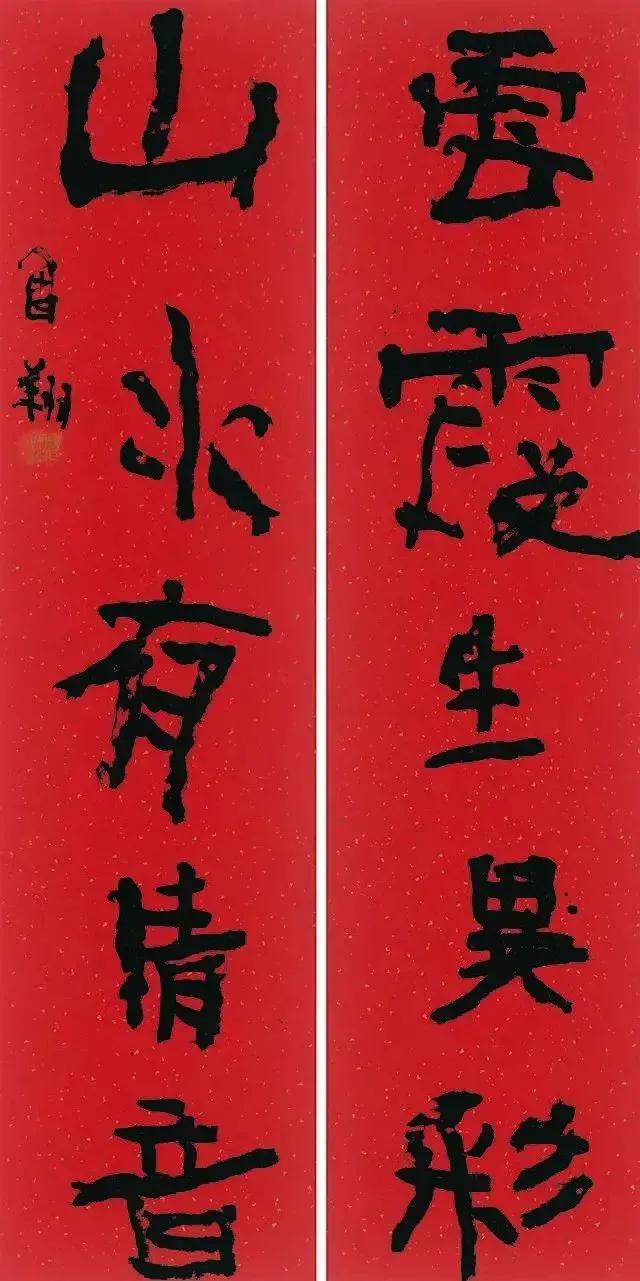 雲霞生異彩
山水有清音
曾翔